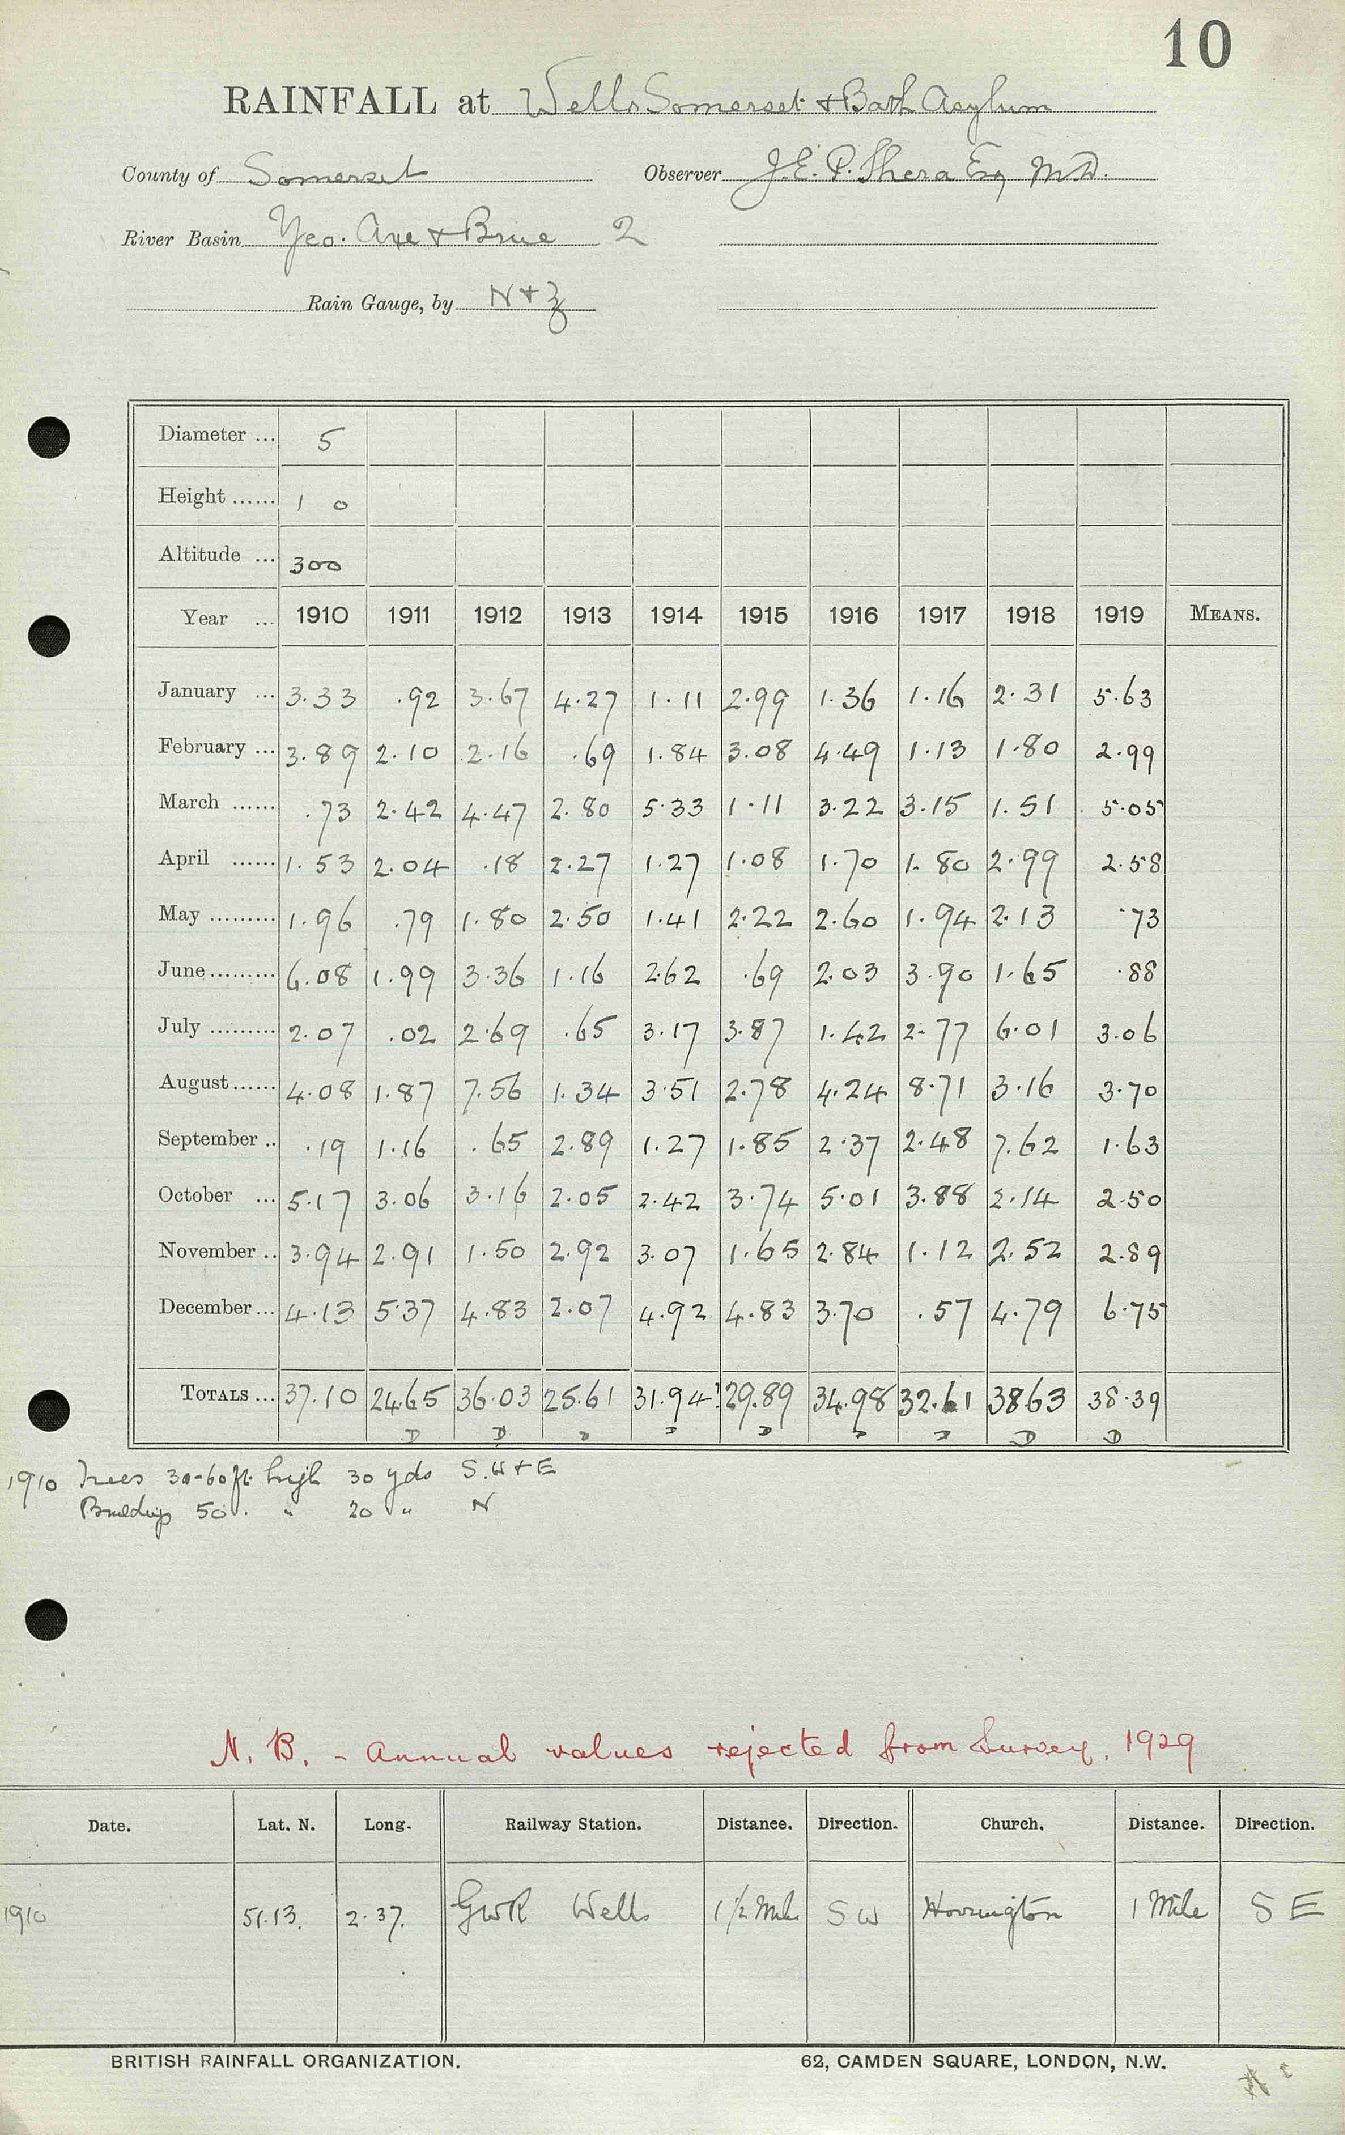 10
RAINFALL at Wells Somerset & Bath Asylum
County of Somerset Observer J.E.P. Shera Esq M.D.
River Basin Yeo. Axe & Brue 2
Rain Gauge, by N & Z
Diameter ... 5
Height ...... 1 0
Altitude ... 300
Year ... 1910 1911 1912 1913 1914 1915 1916 1917 1918 1919 MEANS.
January ... 3.33 .92 3.67 4.27 1.11 2.99 1.36 1.16 2.31 5.63
February ... 3.89 2.10 2.16 .69 1.84 3.08 4.49 1.13 1.80 2.99
March ...... .73 2.42 4.47 2.80 5.33 1.11 3.22 3.15 1.51 5.05
April ...... 1.53 2.04 .18 2.27 1.27 1.08 1.70 1.80 2.99 2.58
May ......... 1.96 .79 1.80 2.50 1.41 2.22 2.60 1.94 2.13 .73
June ......... 6.08 1.99 3.36 1.16 2.62 .69 2.03 3.90 1.65 .88
July ......... 2.07 .02 2.69 .65 3.17 3.87 1.42 2.77 6.01 3.06
August ...... 4.08 1.87 7.56 1.34 3.51 2.78 4.24 8.71 3.16 3.70
September .. .19 1.16 .65 2.89 1.27 1.85 2.37 2.48 7.62 1.63
October ... 5.17 3.06 3.16 2.05 2.42 3.74 5.01 3.88 2.14 2.50
November .. 3.94 2.91 1.50 2.92 3.07 1.65 2.84 1.12 2.52 2.89
December ... 4.13 5.37 4.83 2.07 4.92 4.83 3.70 .57 4.79 6.75
TOTALS ... 37.10 24.65 36.03 25.61 31.94 29.89 34.98 32.61 38.63 38.39
D D D D D D D D D
1910 Trees 30-60 ft. high 30 yds S.W & E
Buildings 50 . " 20 " N
N.B. - Annual values rejected from Survey. 1929
Date. Lat. N. Long. Railway Station. Distance. Direction. Church. Distance. Direction.
1910 51.13. 2.37. GWR Wells 1 1/2 Mile SW Horrington 1 Mile S E
BRITISH RAINFALL ORGANIZATION. 62, CAMDEN SQUARE, LONDON, N.W.